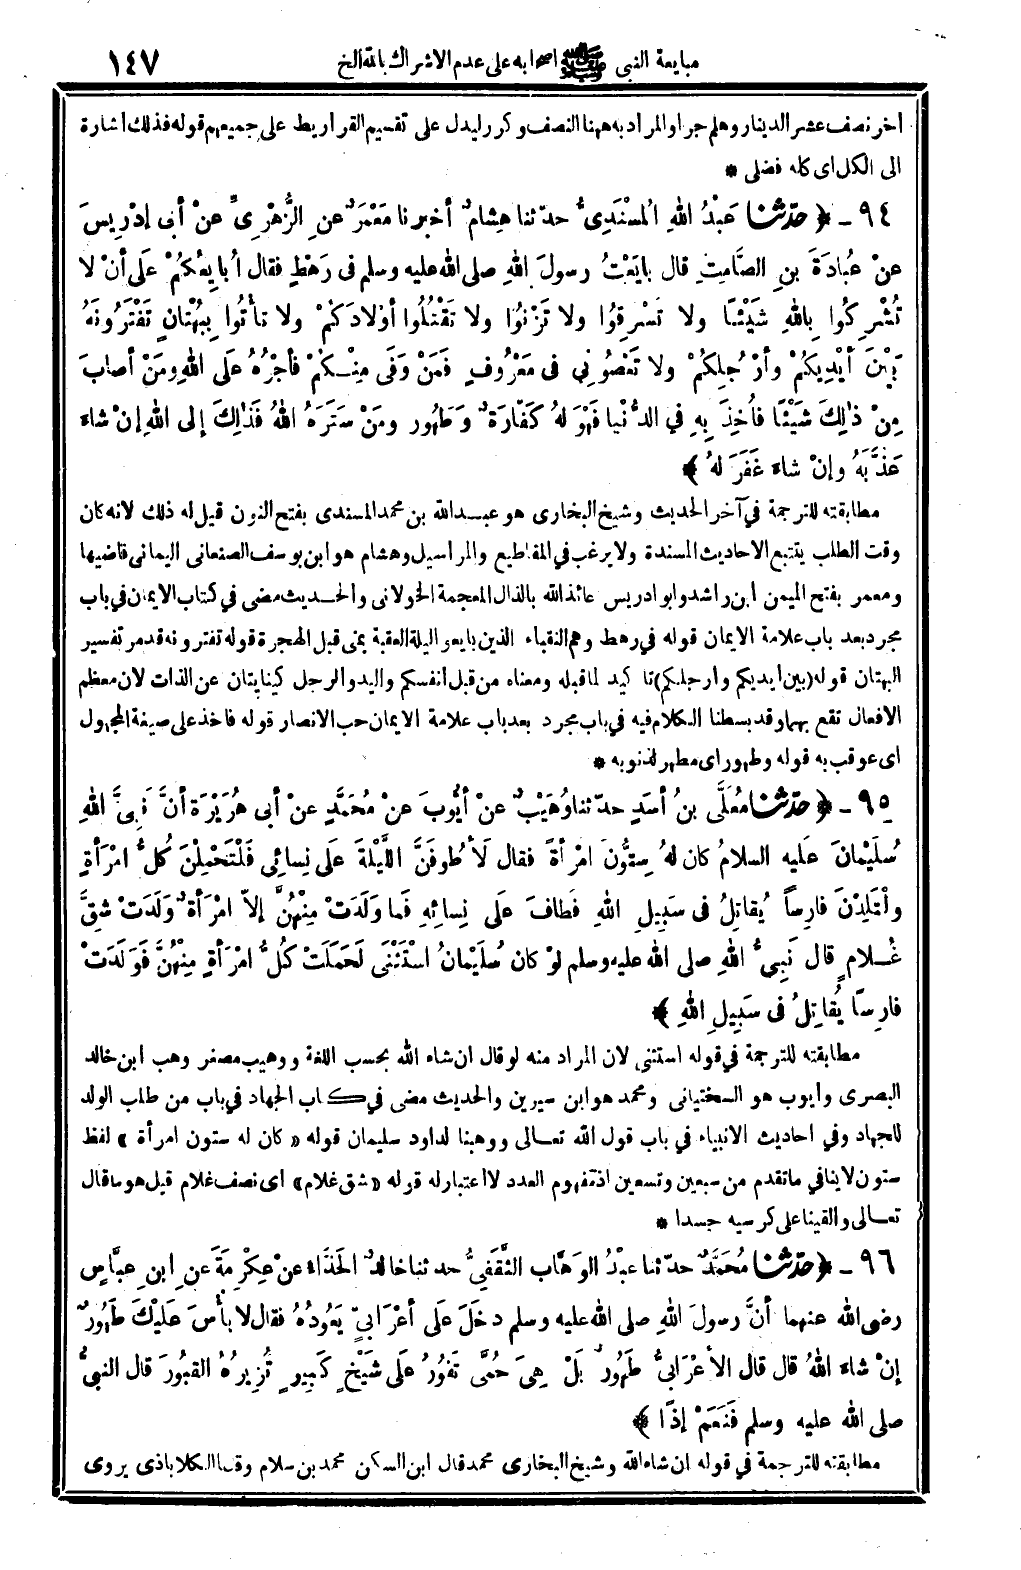 مبايعة النبي ﷺ اصحابه على عدم الاشراك بالله الخ ١٤٧
آخر نصف عشر الدينار وهلم جرا والمراد به ههنا النصف وكرر ليدل على تقسيم القراريط على جميعهم قوله فذلك اشارة
الى الكل اى كله فضلى *
٩٤ - ﴿ حَدَّثَنَا عَبْدُ اللهِ الْمُسْنَدِىُّ حدثنا هِشامٌ أخبرنا مَعْمَرٌ عنِ الزُّهْرِىِّ عنْ أبى إدْرِيسَ
عنْ عُبادَةَ بنِ الصَّامِتِ قال بايَعْتُ رسولَ اللهِ صلى الله عليه وسلم فى رَهْطٍ فقال أُبايِعُكُمْ عَلَى أنْ لا
تُشْرِكُوا بِاللهِ شَيْئًا ولا تَسْرِقُوا ولا تَزْنُوا ولا تَقْتُلُوا أوْلادَكمْ ولا تأتُوا بِبُهْتانٍ تَفْتَرُونَهُ
بَيْنَ أيْدِيكُمْ وأرْجُلِكُمْ ولا تَعْصُونِي فى مَعْرُوفٍ فَمَنْ وَفَى مِنْكُمْ فأجْرُهُ عَلَى اللهِ ومَنْ أصابَ
مِنْ ذَلِكَ شَيْئًا فأُخِذَ بِهِ فِي الدُّنْيا فَهْوَ لهُ كَفّارَةٌ وَطَهُور ومَنْ سَتَرَهُ اللهُ فَذَلِكَ إلى اللهِ إنْ شاءَ
عَذَّبَهُ وإنْ شاءَ غَفَرَ لهُ ﴾
مطابقته للترجمة في آخر الحديث وشيخ البخارى هو عبد الله بن محمد المسندى بفتح النون قيل له ذلك لانه كان
وقت الطلب يتتبع الاحاديث المسندة ولا يرغب في المقاطيع والمراسيل وهشام هو ابن يوسف الصنعانى اليمانى قاضيها
ومعمر بفتح الميمن ابن راشد وابو ادريس عائذ الله بالذال المعجمة الخولانى والحديث مضى في كتاب الايمان في باب
مجرد بعد باب علامة الايمان قوله في رهط وهم النقباء الذين بايعوا ليلة العقبة بمنى قبل الهجرة قوله تفترونه قد مر تفسير
البهتان قوله (بين أيديكم وارجلكم) تا كيد لما قبله ومعناه من قبل أنفسكم واليد والرجل كنايتان عن الذات لان معظم
الافعال تقع بهما وقد بسطنا الكلام فيه في باب مجرد بعد باب علامة الايمان حب الانصار قوله فاخذ على صيغة المجهول
اى عوقب به قوله وطهور اى مطهر لذنوبه *
٩٥ - ﴿ حَدَّثَنَا مُعَلَّى بنُ أسَدٍ حدثنا وُهَيْبٌ عنْ أيُّوبَ عنْ مُحَمَّدٍ عنْ أبى هُرَيْرَةَ أنَّ نَبِىَّ اللهِ
سُلَيْمانَ عليه السلامُ كان لهُ سِتُّونَ امْرأةً فقال لَأطُوفَنَّ اللَّيْلَةَ عَلَى نِسائِى فَلْتَحْمِلْنَ كُلُّ امْرَأةٍ
ولْتَلِدْنَ فارِساً يُقاتِلُ فى سَبِيلِ اللهِ فَطافَ عَلَى نِسائِهِ فَما ولَدَتْ مِنْهُنَّ إلاّ امْرَأةٌ ولَدَتْ شِقَّ
غُلامٍ قال نَبِىُّ اللهِ صلى الله عليه وسلم لوْ كان سُلَيْمانُ اسْتَثْنَى لَحَمَلَتْ كُلُّ امْرَأةٍ مِنْهُنَّ فَوَلَدَتْ
فارِسًا يُقاتِلُ فى سَبِيلِ اللهِ ﴾
مطابقته للترجمة في قوله استثنى لان المراد منه لو قال ان شاء الله بحسب اللغة ووهيب مصغر وهب ابن خالد
البصرى وأيوب هو السختيانى ومحمد هو ابن سيرين والحديث مضى في كتاب الجهاد في باب من طلب الولد
للجهاد وفي احاديث الانبياء في باب قول الله تعالى ووهبنا لداود سليمان قوله «كان له ستون امرأة» لفظ
ستون لا ينافي ما تقدم من سبعين وتسعين اذ مفهوم العدد لا اعتبار له قوله «شق غلام» اى نصف غلام قيل هو ما قال
تعالى والقينا على كرسيه جسدا *
٩٦ - ﴿ حَدَّثَنَا مُحَمَّدٌ حدثنا عبْدُ الوَهَّاب الثَّقَفِيُّ حدثنا خالدٌ الحَذّاءُ عنْ عِكْرِمَةَ عنِ ابنِ عبَّاسٍ
رضى الله عنهما أنَّ رسولَ اللهِ صلى الله عليه وسلم دخَلَ عَلَى أعْرَابىٍّ يَعُودُهُ فقال لا بأْسَ عَلَيْكَ طَهُورٌ
إنْ شاءَ اللهُ قال قال الأعْرَابىُّ طَهُورٌ بَلْ هِىَ حُمَّى تَفُورُ عَلَى شَيْخٍ كَبيرٍ تُزِيرُهُ القُبُورَ قال النبىُّ
صلى الله عليه وسلم فَنَعَمْ إذًا ﴾
مطابقته للترجمة في قوله ان شاء الله وشيخ البخارى محمد قال ابن السكن محمد بن سلام وقال الكلاباذى يروى